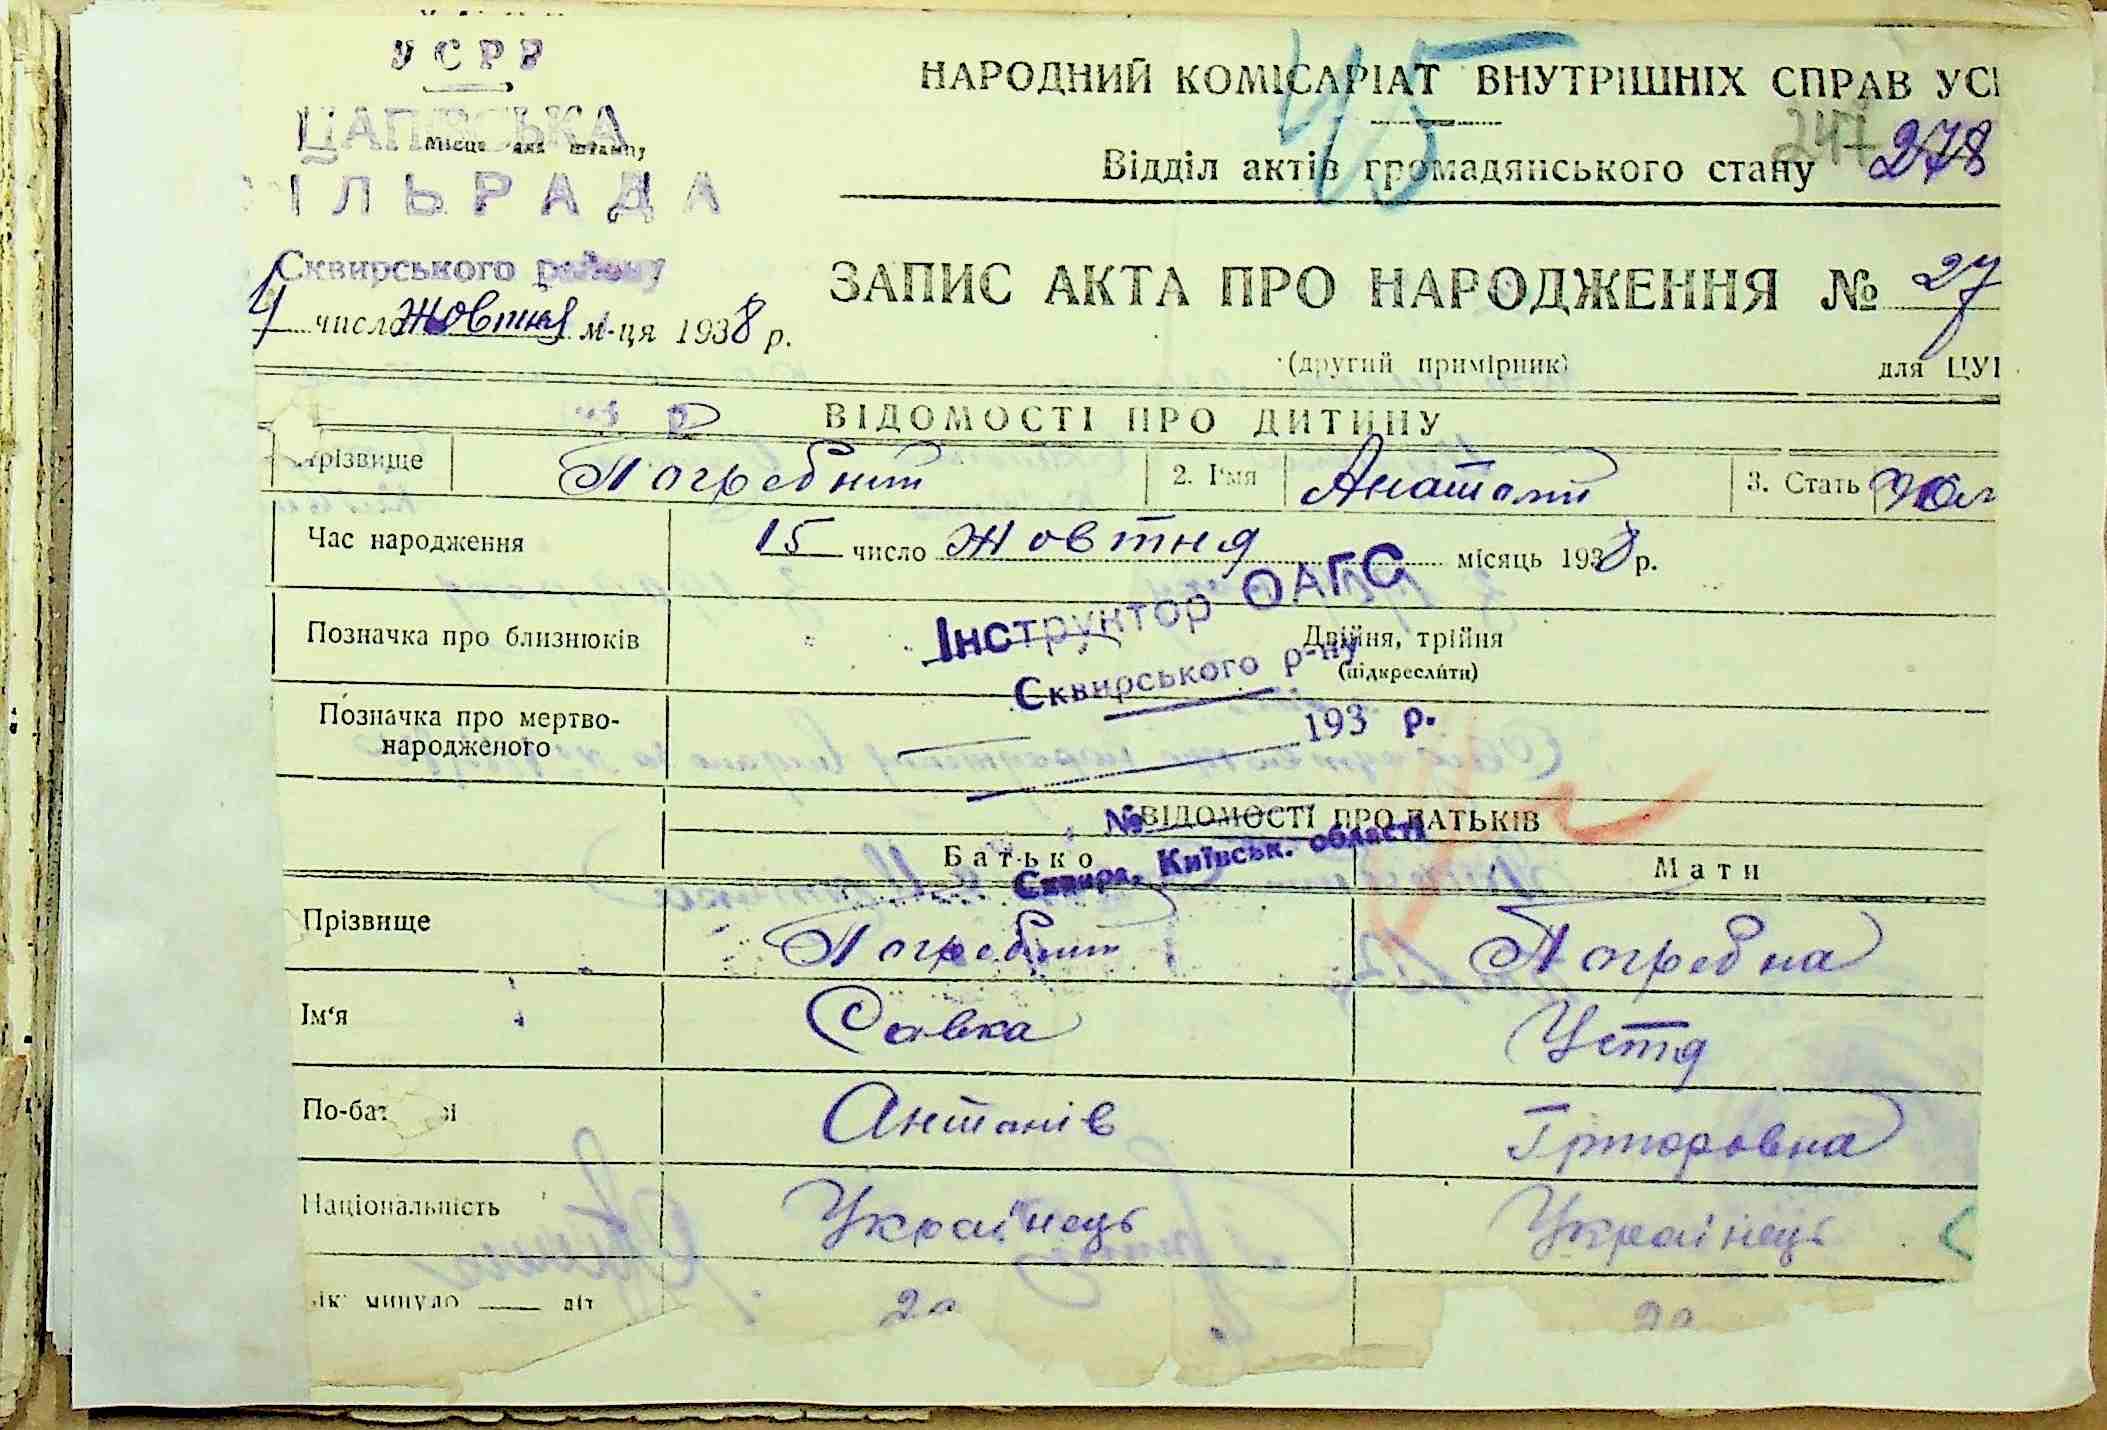 УСРР
НАРОДНИЙ КОМІСАРІАТ ВНУТРІШНІХ СПРАВ УС
45
Місце для штампу
ІЛЬРАДА
247 278
Відділ актів громадянського стану
Сквирського району
число жовтня м-ця 1938 р.
ЗАПИС АКТА ПРО НАРОДЖЕННЯ № 27
(другий примірник)
для ЦУ
ВІДОМОСТІ ПРО ДИТИНУ
Прізвище Погребний 2. Ім'я Анатолій 3. Стать чол
Час народження 15 число жовтня місяць 1938 р.
Інструктор ОАГС
Позначка про близнюків Двійня, трійня
(підкреслити)
Сквирського р-ну
Позначка про мертво-
народженого
193 р.
№
ВІДОМОСТІ ПРО БАТЬКІВ
Сквира, Київськ. області
Батько Мати
Прізвище Погребний Погребна
Ім'я Савка Устя
По-бат ві Антонів Григоровна
Національність Українець Українець
ік минуло літ